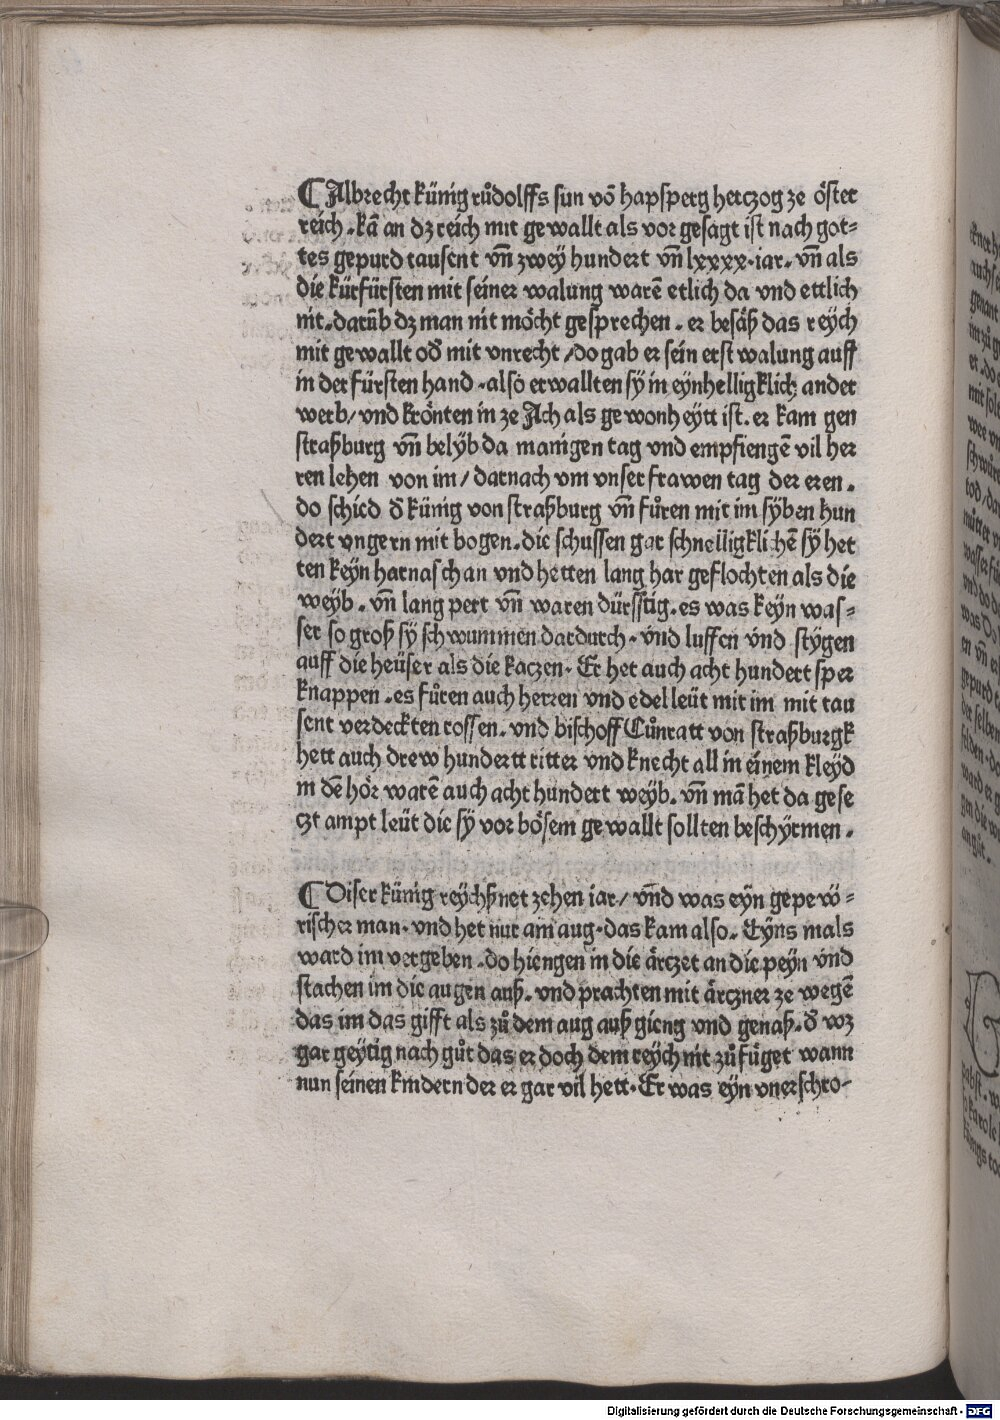 ⁋ Albrecht künig růdolffs sun võ hapsperg herczog ze öster
reich. kã an dz reich mit gewallt als vor gesagt ist nach got⸗
tes gepurd tausent vñ zwey hundert vñ lxxxx. iar. vñ als
die kürfürsten mit seiner walung warẽ etlich da vnd ettlich
nit. darũb dz man nit möcht gesprechen. er besäß das reych
mit gewallt oď mit vnrecht / do gab er sein erst walung auff
in der fürsten hand. also erwallten sÿ in eynhelligklich ander
werb / vnd krönten in ze Ach als gewonheÿtt ist. er kam gen
straßburg vñ belÿb da manigen tag vnd empfiengẽ vil her
ren lehen von im / darnach vm vnser frawen tag der eren.
do schied ď künig von straßburg vñ fůren mit im sÿben hun
dert vngern mit bogen. die schussen gar schnelligklichẽ sÿ het
ten keÿn harnasch an vnd hetten lang har geflochten als die
weÿb. vñ lang pert vñ waren dürsstig. es was keÿn was⸗
ser so groß sÿ schwummen dardurch. vnd luffen vnd stÿgen
auff die heüser als die kaczen. Er het auch acht hundert sper
knappen. es fůren auch herren vnd edel leüt mit im mit tau
sent verdeckten rossen. vnd bischoff Cůnratt von straßburgk
hett auch drew hundertt ritter vnd knecht all in einem kleÿd
in dẽ hör warẽ auch acht hundert weÿb. vñ mã het da gese
czt ampt leüt die sÿ vor bösem gewallt sollten beschÿrmen.

⁋ Diser künig reÿchßnet zehen iar / vñd was eÿn gepew̋⸗
rischer man. vnd het nur am aug. das kam also. Eÿns mals
ward im vergeben. do hiengen in die ärczet an die peÿn vnd
stachen im die augen auß. vnd prachten mit ärczner ze wegẽ
das im das gifft als zů dem aug auß gieng vnd genaß. ď wz
gar geÿtig nach gůt das er doch dem reÿch nit zů füget wann
nun seinen kindern der er gar vil hett. Er was eÿn vnerschro⸗

Digitalisierung gefördert durch die Deutsche Forschungsgemeinschaft - DFG